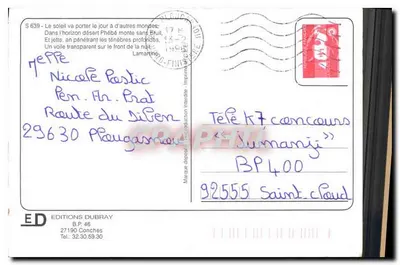 S 639 - Le soleil va porter le jour à d'autres mondes;
Dans l'horizon désert Phébé monte sans bruit,
Et jette, en pénétrant les ténèbres profondes,
Un voile transparent sur le front de la nuit.
Lamartine
Melle
Nicole Postic
Pen. Ar. Prat
Route du
29630 Plougasnou
Télé K7 concours
"Jumanji"
BP 400
92555 Saint-Cloud
ED EDITIONS DUBRAY
B.P. 46
27190 Conches
Tel.: 32.30.59.30